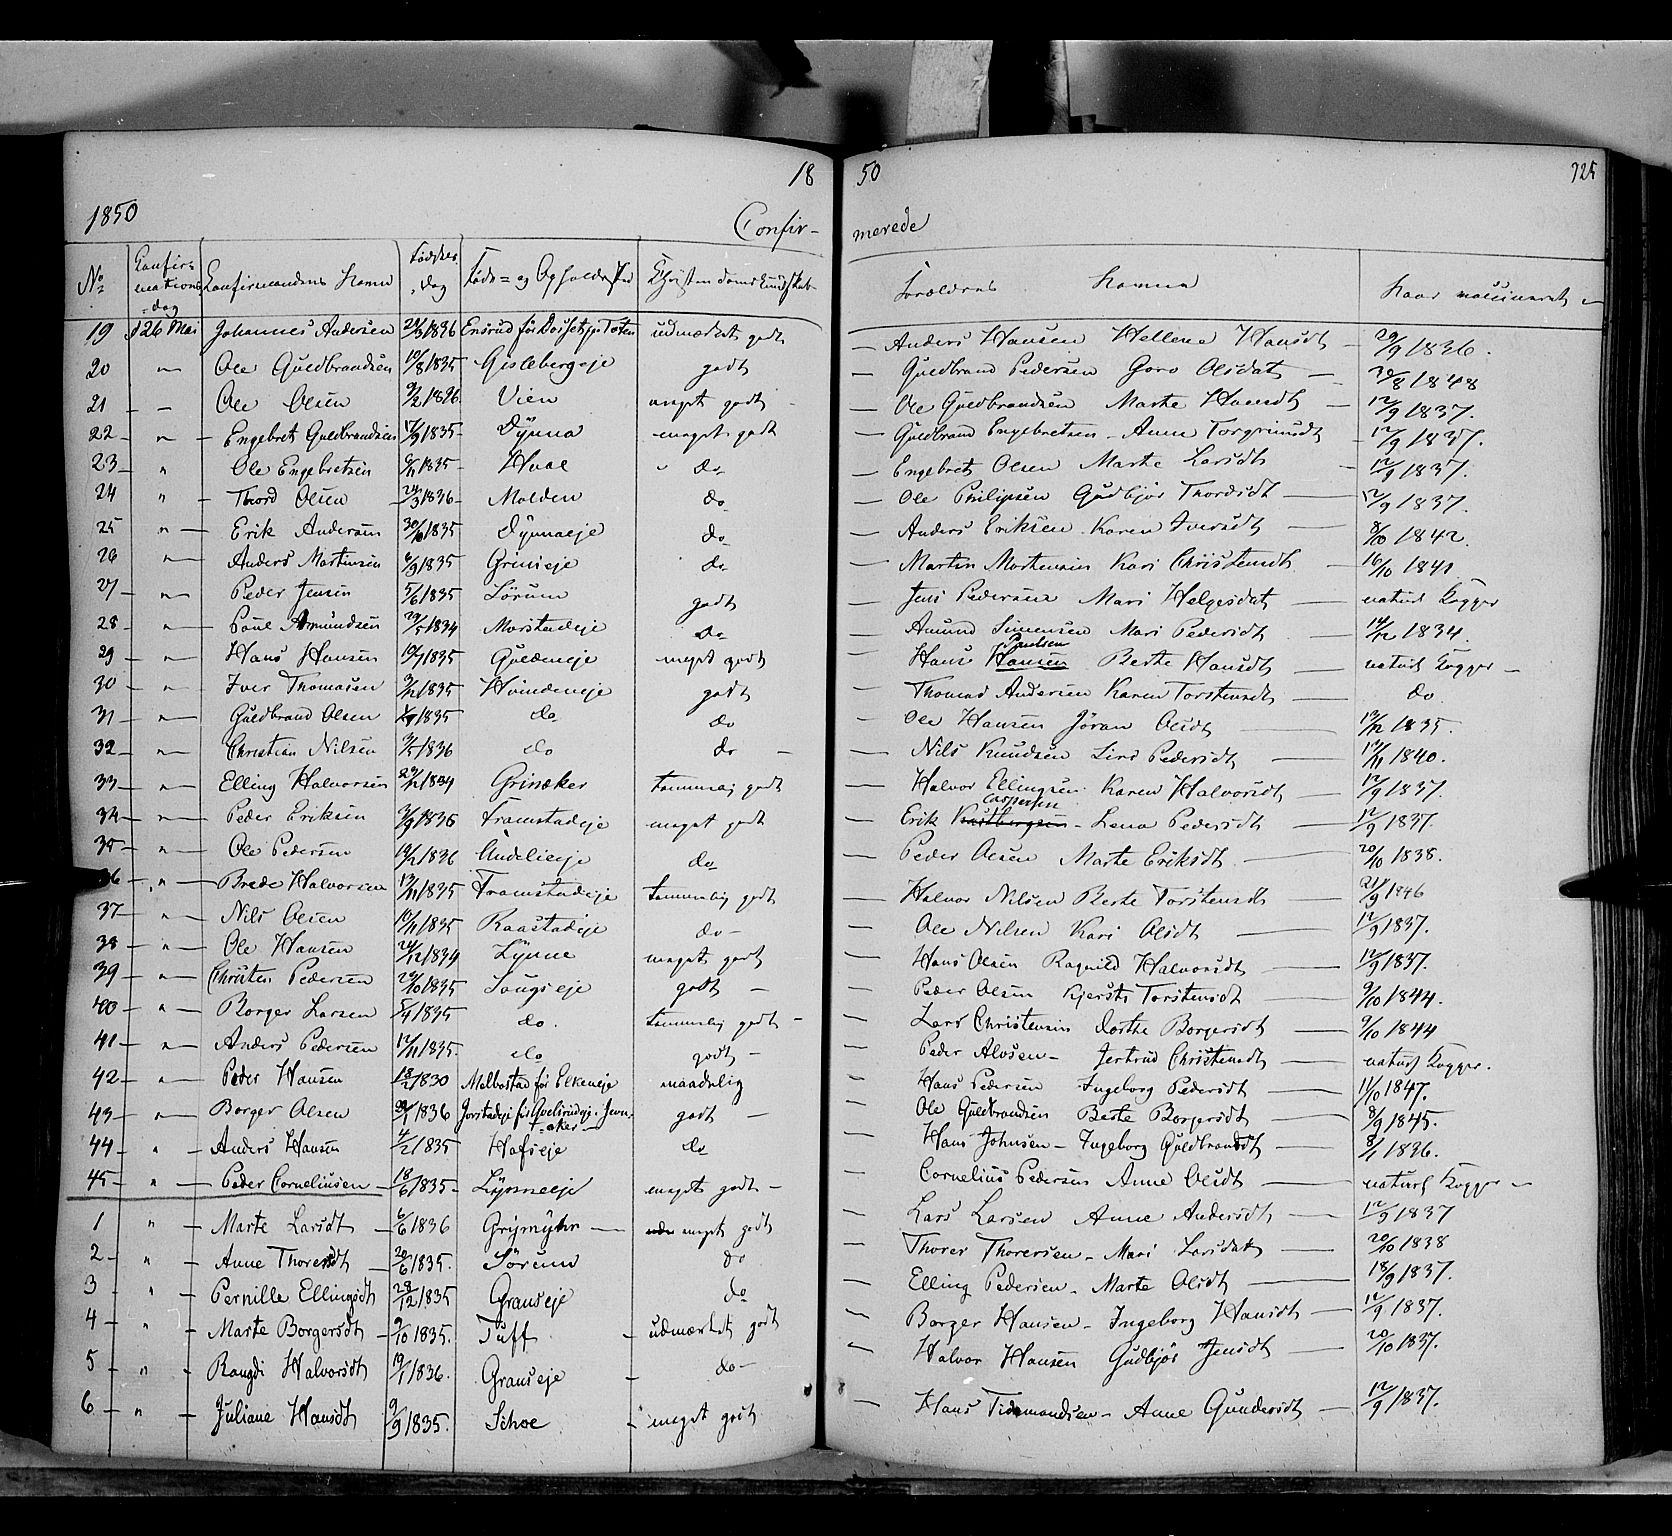 18 50 325
1850 Confir- merede
No Confirmations dag Confirmandens Navn Fødsels dag Føde- og Opholds Sted Christendoms Kundskab Forældrenes Navne Naar vaccineret
19 d 26 Mai Johannes Andersen 1836 Ensrud før Toten udmærket godt — Anders Hansen Hellene Hansdt — 29/9 1836.
20 " Ole Guldbrandsen 10/8 1835 Gislebergeje godt — Guldbrand Pedersen Goro Olsdat — 30/8 1848
21 — Ole Olsen Vien meget godt — Ole Guldbrandsen Marte Hansdt — 12/9 1837.
22 — " — Engebret Guldbrandsen 17/9 1835 Dynna meget godt — Guldbrand Engebretsen — Anne Torgrimsdt — 12/9 1837.
23 — " Ole Engebretsen 1835 — Hval do — Engebret Olsen Marte Larsdt — 12/9 1837.
24 " — Thord Olsen 24/3 1836 — Molden do — Ole Philipsen Gudbjør Thordsdt — 12/9 1837.
25 " — Erik Andersen 30/10 1835 Dynnaeje do — Anders Eriksen Karen Iversdt — 8/10 1842.
26 " — Anders Martinsen 6/9 1835 Grinieje do — Martin Mortensen Kari Christensdt — 16/10 1841
27 " — Peder Jensen 5/6 1835 Sörum godt — Jens Pedersen Mari Helgesdat — naturl Kopper
28 " — Poul Amundsen 29/5 1834 Morstadeje do — Amund Simensen Mari Pedersdt — 14/12 1834.
29 " — Hans Hansen 1835 Guldeneje meget godt — Hans Hansen Paulsen Berthe Hansdt — naturl Kopper —
30 " — Iver Thomasen 1835 Hvindeneje godt — Thomas Andersen Karen Torstensdt — do
31 " — Guldbrand Olsen 1835 do do — Ole Hansen Jöran Olsdt — 13/12 1835.
32 — " — Christian Nilsen 3/5 1836 do do — Nils Knudsen Siri Pedersdt — 13/11 1840.
33 — " — Elling Halvorsen 23/12 1834 Grinaker temmelig godt — Halvor Ellingsen Karen Halvorsdt — 12/9 1837.
34 — " — Peder Eriksen 1835 Framstadeje meget godt — Erik Caspersen — Lena Pedersdt — 12/9 1837.
35 — " — Ole Pedersen 1836 do — Peder Olsen Marte Eriksdt — 20/10 1838.
36 — " — Brede Halvorsen 13/11 1835 Framstadeje temmelig godt — Halvor Nilsen Berte Torstensdt — 21/9 1846
37 — " — Nils Olsen 10/11 1835 Raastadeje do — Ole Nilsen Kari Olsdt — 12/9 1837.
38 — " — Ole Hansen 24/12 1834 Lynne meget godt — Hans Olsen Ragnild Halvorsdt — 12/9 1837.
39 — " — Christen Pedersen 23/10 1835 Sougseje godt — Peder Olsen Kjersti Torstensdt — 9/10 1844.
40 " — Borger Larsen 1835 do. temmelig godt — Lars Christensen Dorthe Borgersdt — 9/10 1844
41 — " — Anders Pedersen 12/11 1835. do godt — Peder Alvsen — Jertrud Christensdt — naturl Kopper.
42 — " — Peder Hansen 18/2 1830 Melbostad før Elkeneje maadelig — Hans Pedersen Ingeborg Pedersdt — 11/10 1847.
43 — " — Borger Olsen 1836 Jorstadeje før Jevnaker godt — Ole Guldbrandsen Berte Borgersdt — 8/9 1845.
44 — " — Anders Hansen 1835 Hofseje do — Hans Johnsen — Ingeborg Guldbrandsdt — 1836.
45 — " — Peder Corneliusen — 18/6 1835 — Lynneeje meget godt — Cornelius Pedersen Anne Olsdt — naturl Kopper —
1 " — Marte Larsdt — 6/6 1836 Grymyhr — meget godt — Lars Larsen Anne Andersdt — 12/9 1837
2 — " — Anne Thorersdt — 20/6 1835. Sörum do — Thorer Thorersen — Mari Larsdat — 20/10 1838
3 " — Pernille Ellingsdt 28/12 1835 Granseje do — Elling Pedersen — Marte Olsdt — 18/9 1837.
4 — " — Marte Borgersdt — 9/10 1835. Tuff — udmærket godt — Borger Hansen — Ingeborg Hansdt — 12/9 1837.
5 — " — Rangdi Halvorsdt 19/1 1836. Granseje — do — Halvor Hansen Gudbjör Jensdt — 20/10 1837.
6 — " — Juliane Hansdt 9/9 1835. Schoe — meget godt — Hans Tidemandsen — Anne Gundersdt — 12/9 1837.